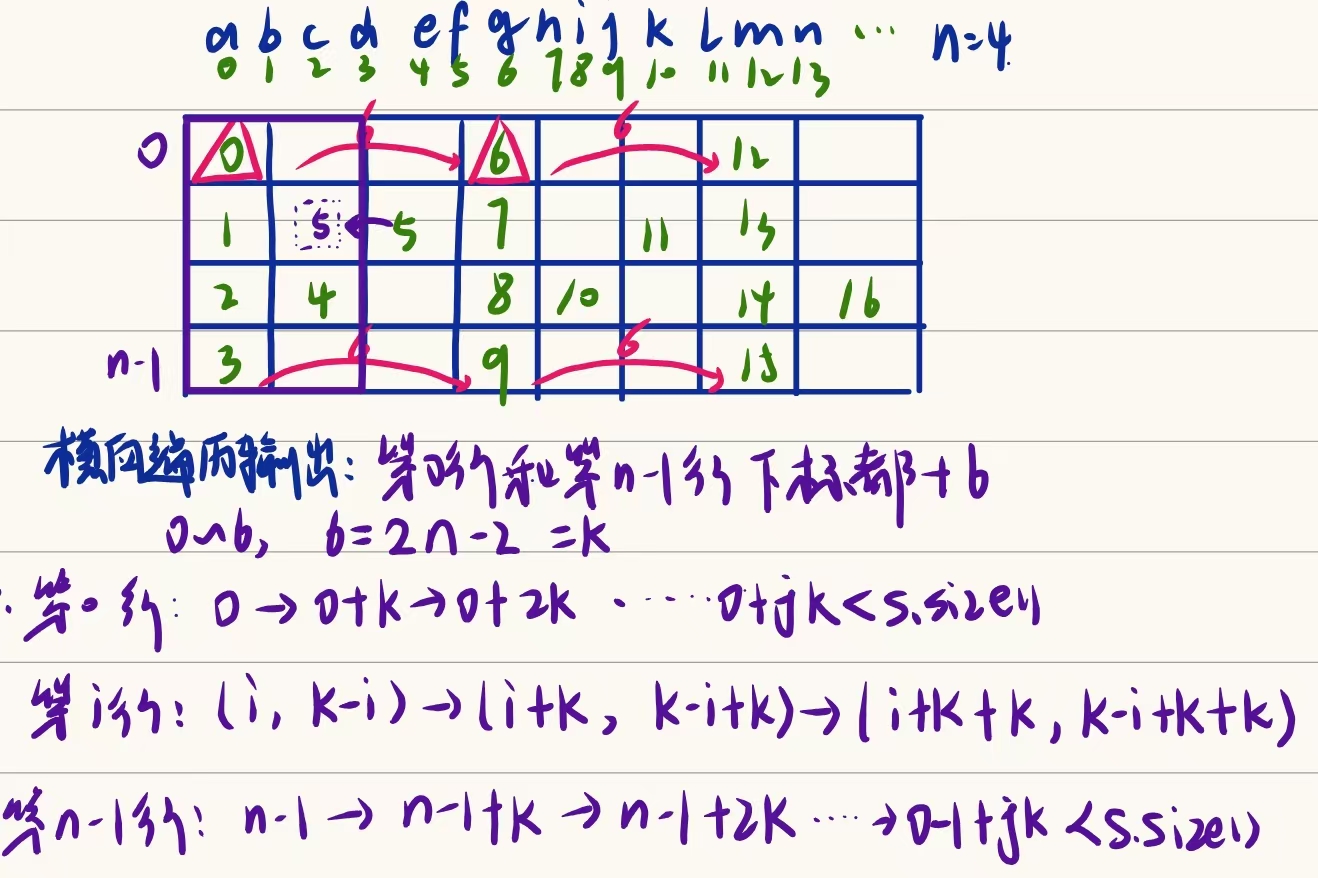 a b c d e f g h i j k l m n … n=4.
0 1 2 3 4 5 6 7 8 9 10 11 12 13
6 6
0 0 6 12
1 5 5 7 11 13
2 4 8 10 14 16
6 6
n-1 3 9 15
横向遍历输出: 第0行和第n-1行下标都+6
0~6, 6=2n-2=k
第0行: 0→0+k→0+2k ·····0+jk<s.size()
第i行: (i, k-i)→(i+k, k-i+k)→(i+k+k, k-i+k+k)
第n-1行: n-1→n-1+k→n-1+2k ····→0-1+jk<s.size()